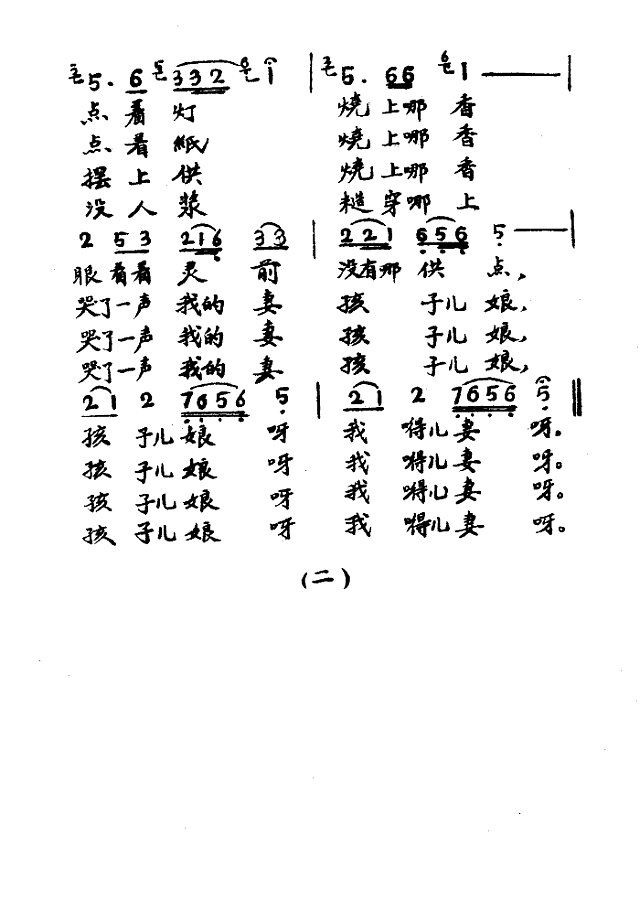 5. 6 332 1 | 5. 66 1 — |
点着灯 烧上那香
点着纸 烧上那香
摆上供 烧上那香
没人浆 糙穿那上
2 53 216 33 | 221 656 5 — |
眼看着灵前 没有那供点，
哭了一声我的妻 孩子儿娘，
哭了一声我的妻 孩子儿娘，
哭了一声我的妻 孩子儿娘，
21 2 7656 5 | 21 2 7656 5 ‖
孩子儿娘呀 我嘚儿妻呀。
孩子儿娘呀 我嘚儿妻呀。
孩子儿娘呀 我嘚儿妻呀。
孩子儿娘呀 我嘚儿妻呀。
（二）